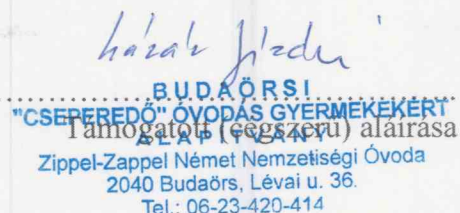 BUDAÖRSI
"CSEPEREDŐ" ÓVODÁS GYERMEKEKÉRT
Támogatott (cégszerű) aláírása
ALAPÍTVÁNY
Zippel-Zappel Német Nemzetiségi Óvoda
2040 Budaörs, Lévai u. 36.
Tel.: 06-23-420-414